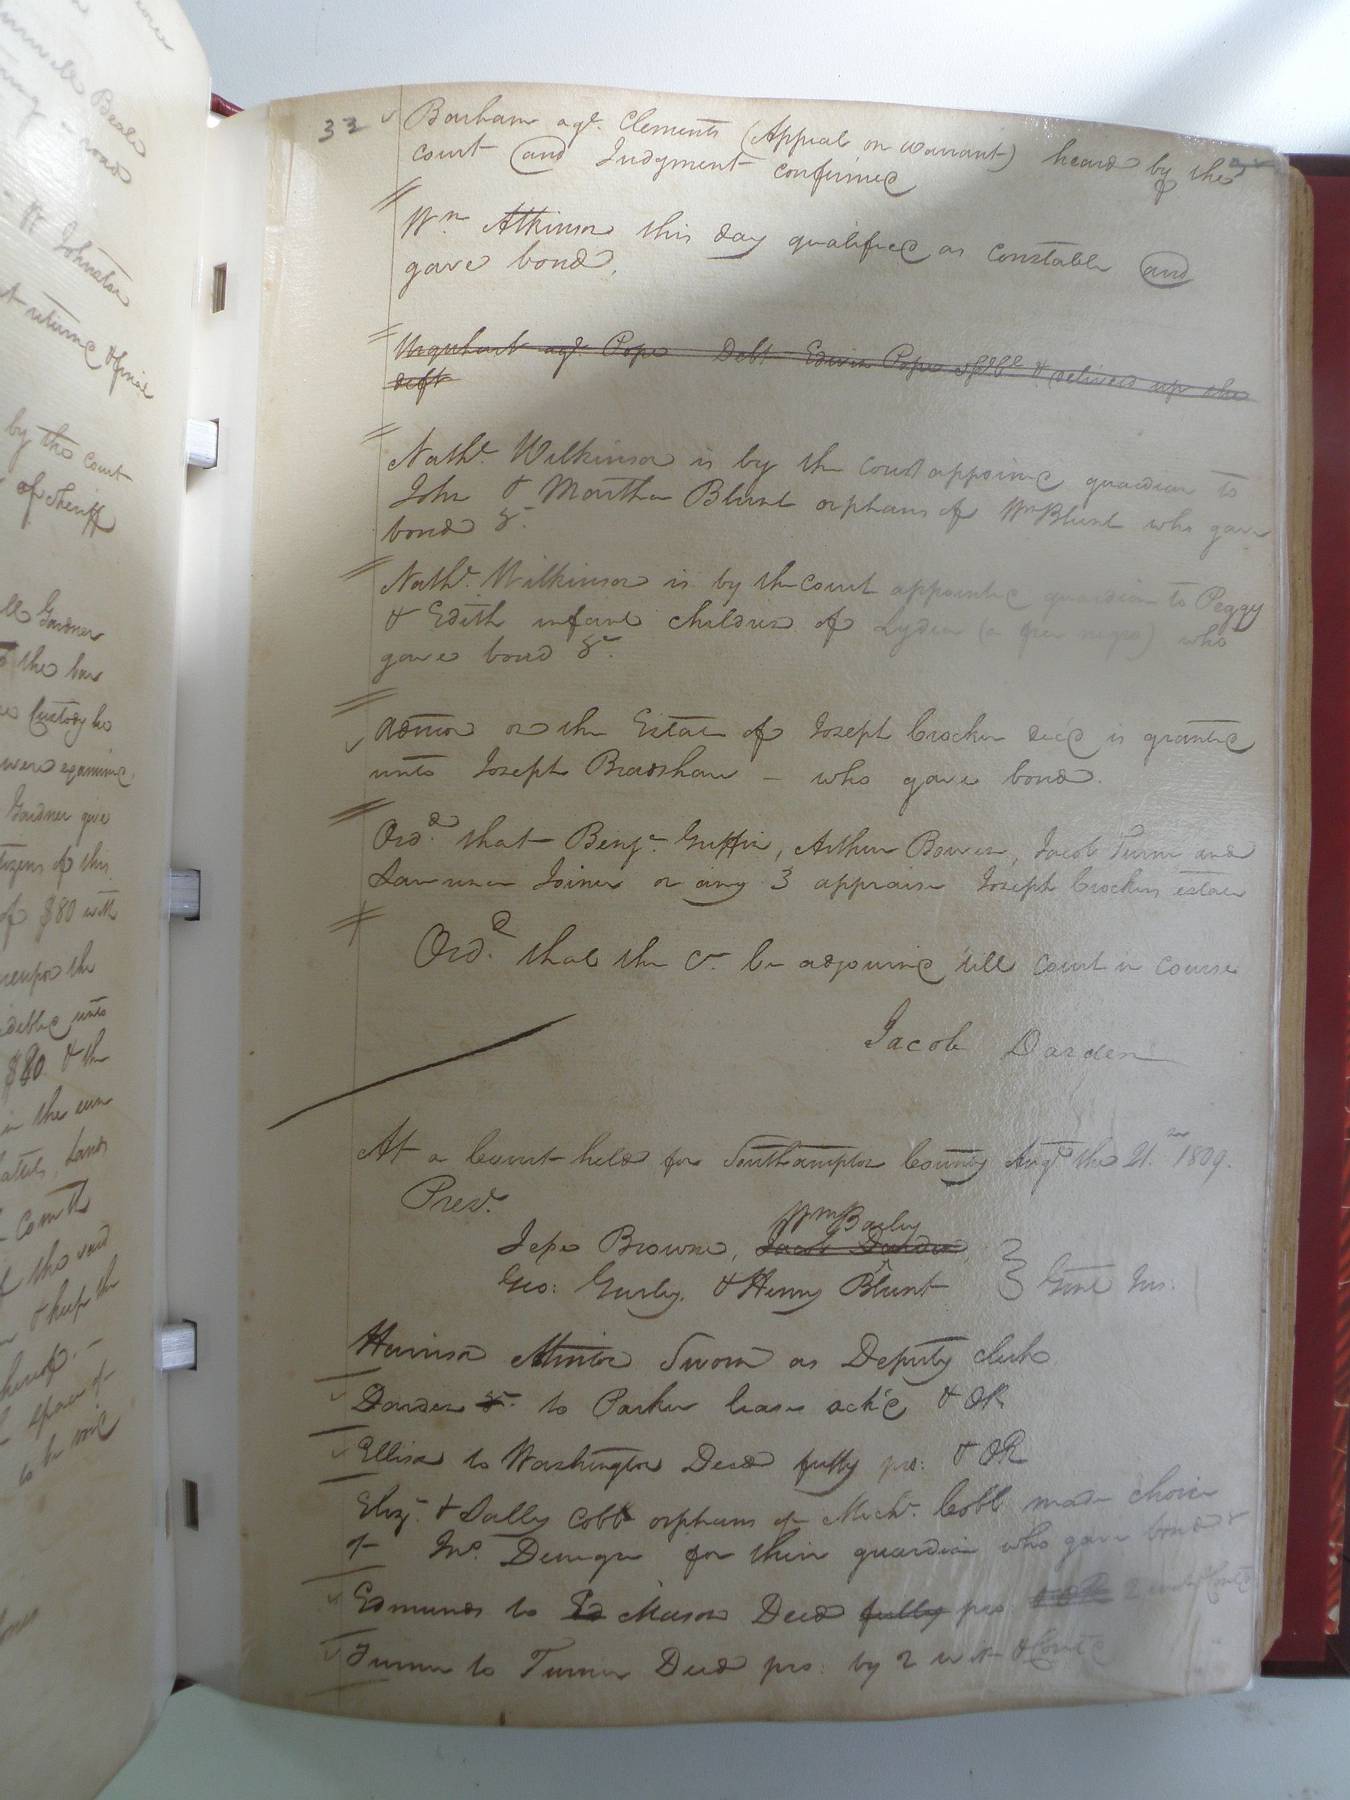 by the Court
of Sheriff
Gardner
the bar
Custody he
were examined
Gardner give
citizens of this
of $80 with
$80. & the
in the sum
Lands
33
Barham agt. Clements (Appeal on warrant) heard by the
court and Judgment confirmed
Wm Atkinson this day qualified as constable and
gave bond.
Urquhart agt. Pope Debt Edwin Pope & delivered up the
deft
Nathl. Wilkinson is by the court appoined guardian to
John & Martha Blunt orphans of Wm Blunt who gave
bond &c.
Nathl. Wilkinson is by the court appointed guardian to Peggy
& Edith infant children of Lydia (a free negro) who
gave bond &c.
admon on the Estate of Joseph Crocker decd is granted
unto Joseph Bradshaw — who gave bond.
Ord. that Benj. Griffin, Arthur Bowen, Jacob Turner and
Lawrence Joiner or any 3 appraise Joseph Crockers estate
Ord. that the Ct. be adjourned till court in course
Jacob Darden
At a Court held for Southampton County Augt the 21. 1809.
Prest.
Wm Bailey
Jesse Browne, Jacob Darden,
Geo: Gurley, & Henry Blunt } Gent Jus:
Harrison Minton Sworn as Deputy clerk
Darden &c. to Parker lease ackd & OR
Ellison to Washington Deed fully pro: & OR
Eliz. & Sally Cobb orphans of Michl. Cobb made choice
of Jno. for their guardian who gave bond &
Edmunds to Ed Mason Deed fully pro: & OR 2
Turner to Turner Deed pro: by 2 wit & Contd